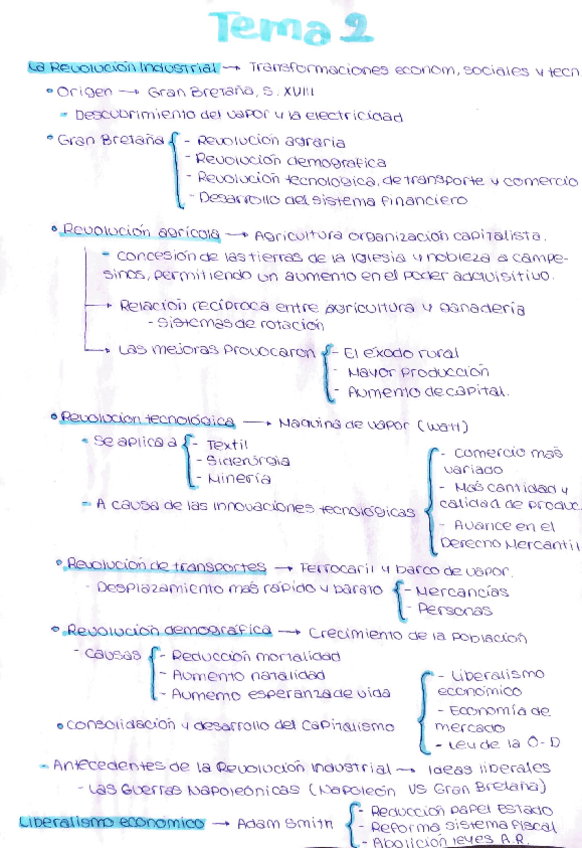 Tema 2
La Revolución Industrial → Transformaciones económ, sociales y tecn
• Origen → Gran Bretaña, S. XVIII
- Descubrimiento del vapor y la electricidad
• Gran Bretaña { - Revolución agraria
- Revolución demografica
- Revolución tecnologica, de transporte y comercio
- Desarrollo del sistema financiero
• Revolución agrícola → Agricultura organización capitalista.
- Concesión de las tierras de la Iglesia y nobleza a campe-
sinos, permitiendo un aumento en el poder adquisitivo.
→ Relación recíproca entre agricultura y ganadería
- Sistemas de rotación
→ Las mejoras provocaron { - El éxodo rural
- Mayor producción
- Aumento de capital.
• Revolución tecnológica → Maquina de vapor (Watt)
- Se aplica a { - Textil
- Siderurgia
- Minería
- A causa de las innovaciones tecnológicas { - Comercio más
variado
- Más cantidad y
calidad de produc.
- Avance en el
Derecho Mercantil
• Revolución de transportes → Ferrocaril y barco de vapor.
- Desplazamiento más rápido y barato { - Mercancías
- Personas
• Revolución demográfica → Crecimiento de la población
- Causas { - Reducción mortalidad
- Aumento natalidad
- Aumento esperanza de vida
• Consolidación y desarrollo del Capitalismo { - Liberalismo
económico
- Economía de
mercado
- Ley de la O-D
- Antecedentes de la Revolución Industrial → Ideas liberales
- Las Guerras Napoleónicas (Napoleón VS Gran Bretaña)
Liberalismo económico → Adam Smith { - Reducción papel Estado
- Reforma sistema fiscal
- Abolición leyes A.R.